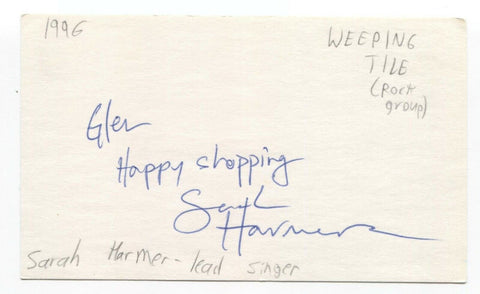 1996
WEEPING
TILE
(rock
group)
Glen
Happy shopping
Sarah
Harmer
Sarah Harmer - lead singer